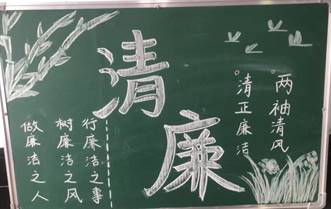 清廉
两袖清风
清正廉洁
行廉洁之事
树廉洁之风
做廉洁之人